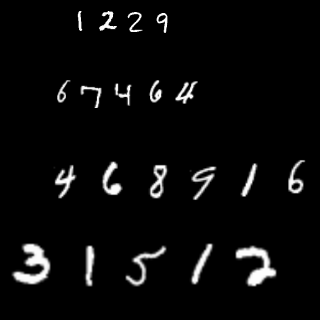 1229
67464
468916
31512